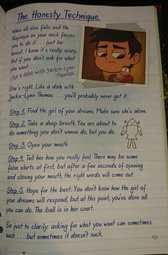 The Honesty Technique
When all else fails and the
in your neck forces
you to do it . . . just be
honest. I know it's really scary,
but if you don't ask for what
you want . . .
Like a date with Jackie-Lynn
Thomas
Star's right. Like a date with
Jackie-Lynn Thomas . . . you'll probably never get it.
Step 1: Find the girl of your dreams. Make sure she's alone.
Step 2: Take a deep breath. You are about to
do something you don't wanna do, but you do.
Step 3: Open your mouth.
Step 4: Tell her how you really feel. There may be some
false starts at first, but after a few seconds of opening
and closing your mouth, the right words will come out.
Step 5: Hope for the best. You don't know how the girl of
your dreams will respond, but at this point, you've done all
you can do. The ball is in her court.
So just to clarify: asking for what you want can sometimes
suck . . . but sometimes it doesn't suck.